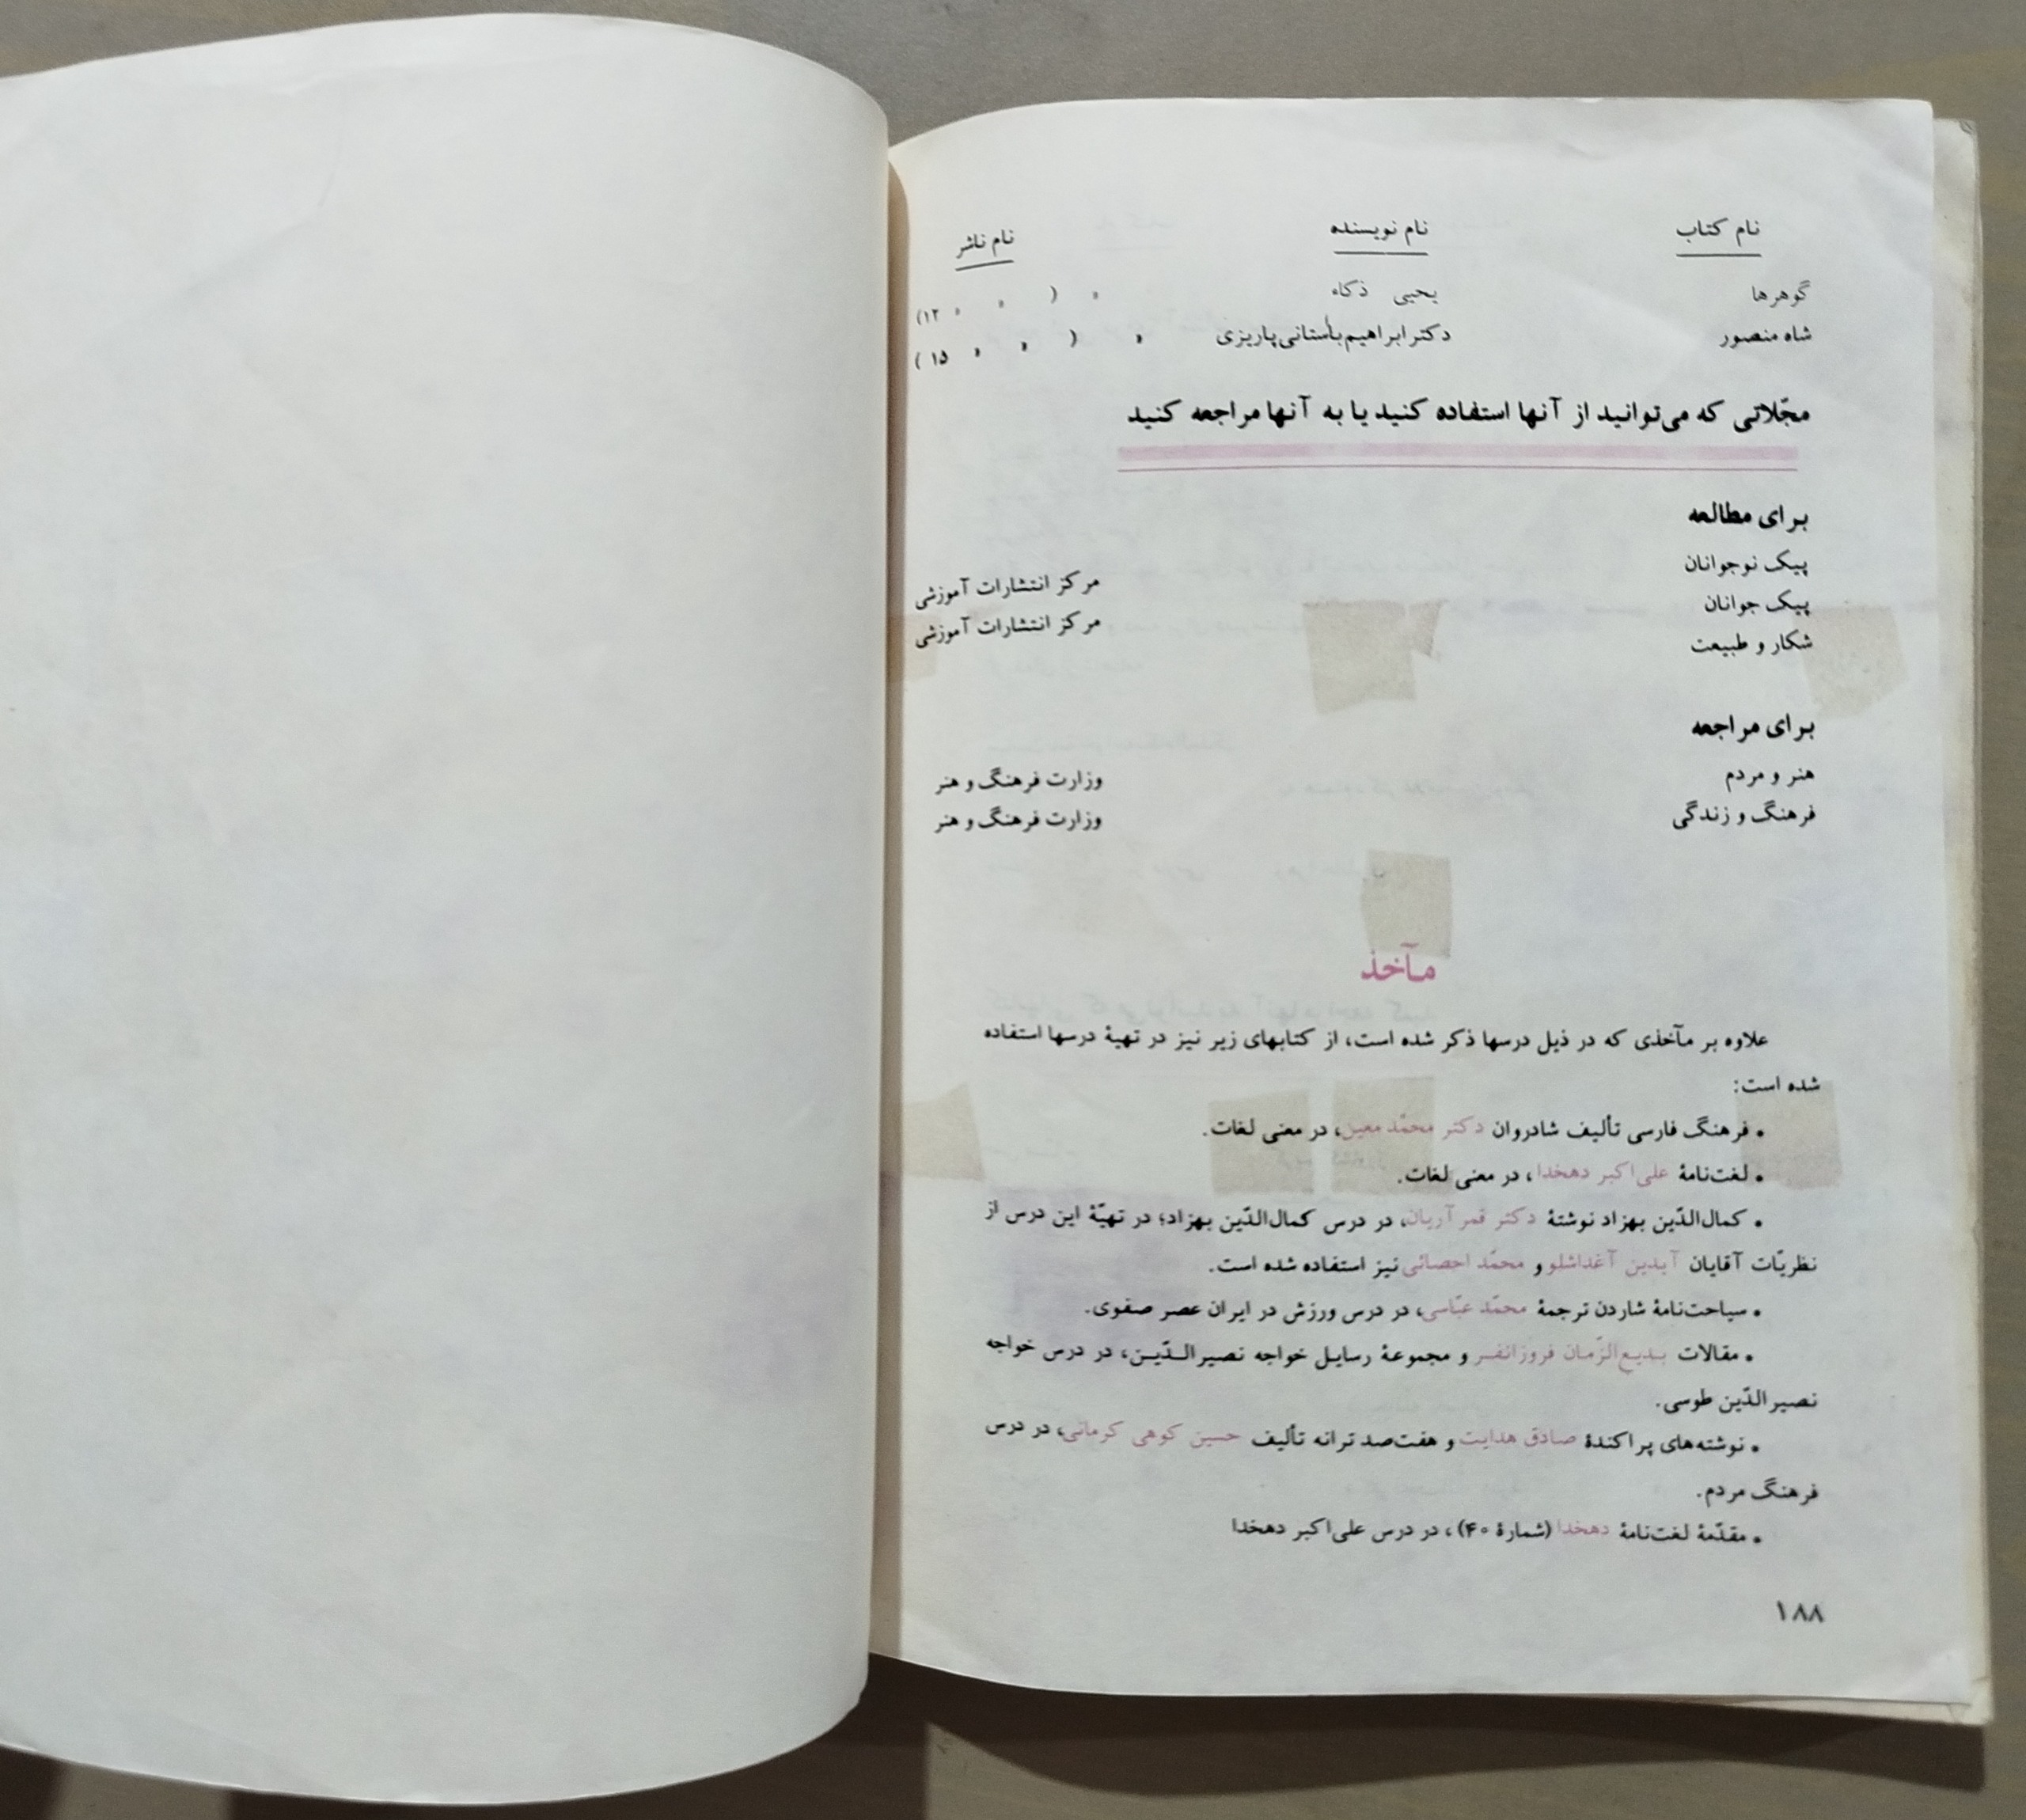 نام کتاب نام نویسنده نام ناشر
گوهرها یحیی ذکاء » ( » » ۱۲)
شاه منصور دکتر ابراهیم باستانی پاریزی » ( » » ۱۵ )
مجّلاتی که می‌توانید از آنها استفاده کنید یا به آنها مراجعه کنید
برای مطالعه
پیک نوجوانان مرکز انتشارات آموزشی
پیک جوانان مرکز انتشارات آموزشی
شکار و طبیعت
برای مراجعه
هنر و مردم وزارت فرهنگ و هنر
فرهنگ و زندگی وزارت فرهنگ و هنر
مـآخذ
علاوه بر مآخذی که در ذیل درسها ذکر شده است، از کتابهای زیر نیز در تهیهٔ درسها استفاده
شده است:
• فرهنگ فارسی تألیف شادروان دکتر محمّد معین، در معنی لغات.
• لغت‌نامهٔ علی‌اکبر دهخدا، در معنی لغات.
• کمال‌الدّین بهزاد نوشتهٔ دکتر قمر آریان، در درس کمال‌الدّین بهزاد؛ در تهیّهٔ این درس از
نظریّات آقایان آیدین آغداشلو و محمّد احصائی نیز استفاده شده است.
• سیاحت‌نامهٔ شاردن ترجمهٔ محمّد عبّاسی، در درس ورزش در ایران عصر صفوی.
• مقالات بدیع‌الزّمان فروزانفر و مجموعهٔ رسایل خواجه نصیرالدّین، در درس خواجه
نصیرالدّین طوسی.
• نوشته‌های پراکندهٔ صادق هدایت و هفت‌صد ترانه تألیف حسین کوهی کرمانی، در درس
فرهنگ مردم.
• مقدّمهٔ لغت‌نامهٔ دهخدا (شمارهٔ ۴۰)، در درس علی‌اکبر دهخدا
۱۸۸